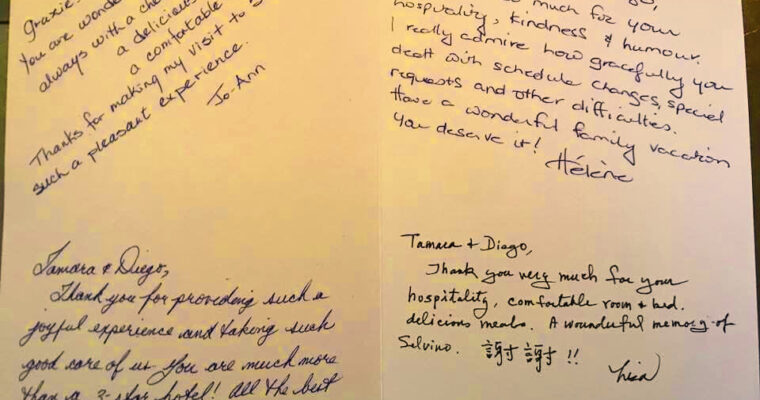 Grazie
You are wonde
always with a che
a delicious
a comfortable
Thanks for making my visit to S
such a pleasant experience.
Jo-Ann
much for your
hospitality, kindness & humour.
I really admire how gracefully you
dealt with schedule changes, special
requests and other difficulties.
Have a wonderful family vacation
You deserve it!
Hélène
Tamara & Diego,
Thank you for providing such a
joyful experience and taking such
good care of us. You are much more
than a 3-star hotel! All the best
Tamara & Diego,
Thank you very much for your
hospitality, comfortable room & bed.
delicious meals. A wounderful memory of
Selvino. 謝謝!!
Lisa